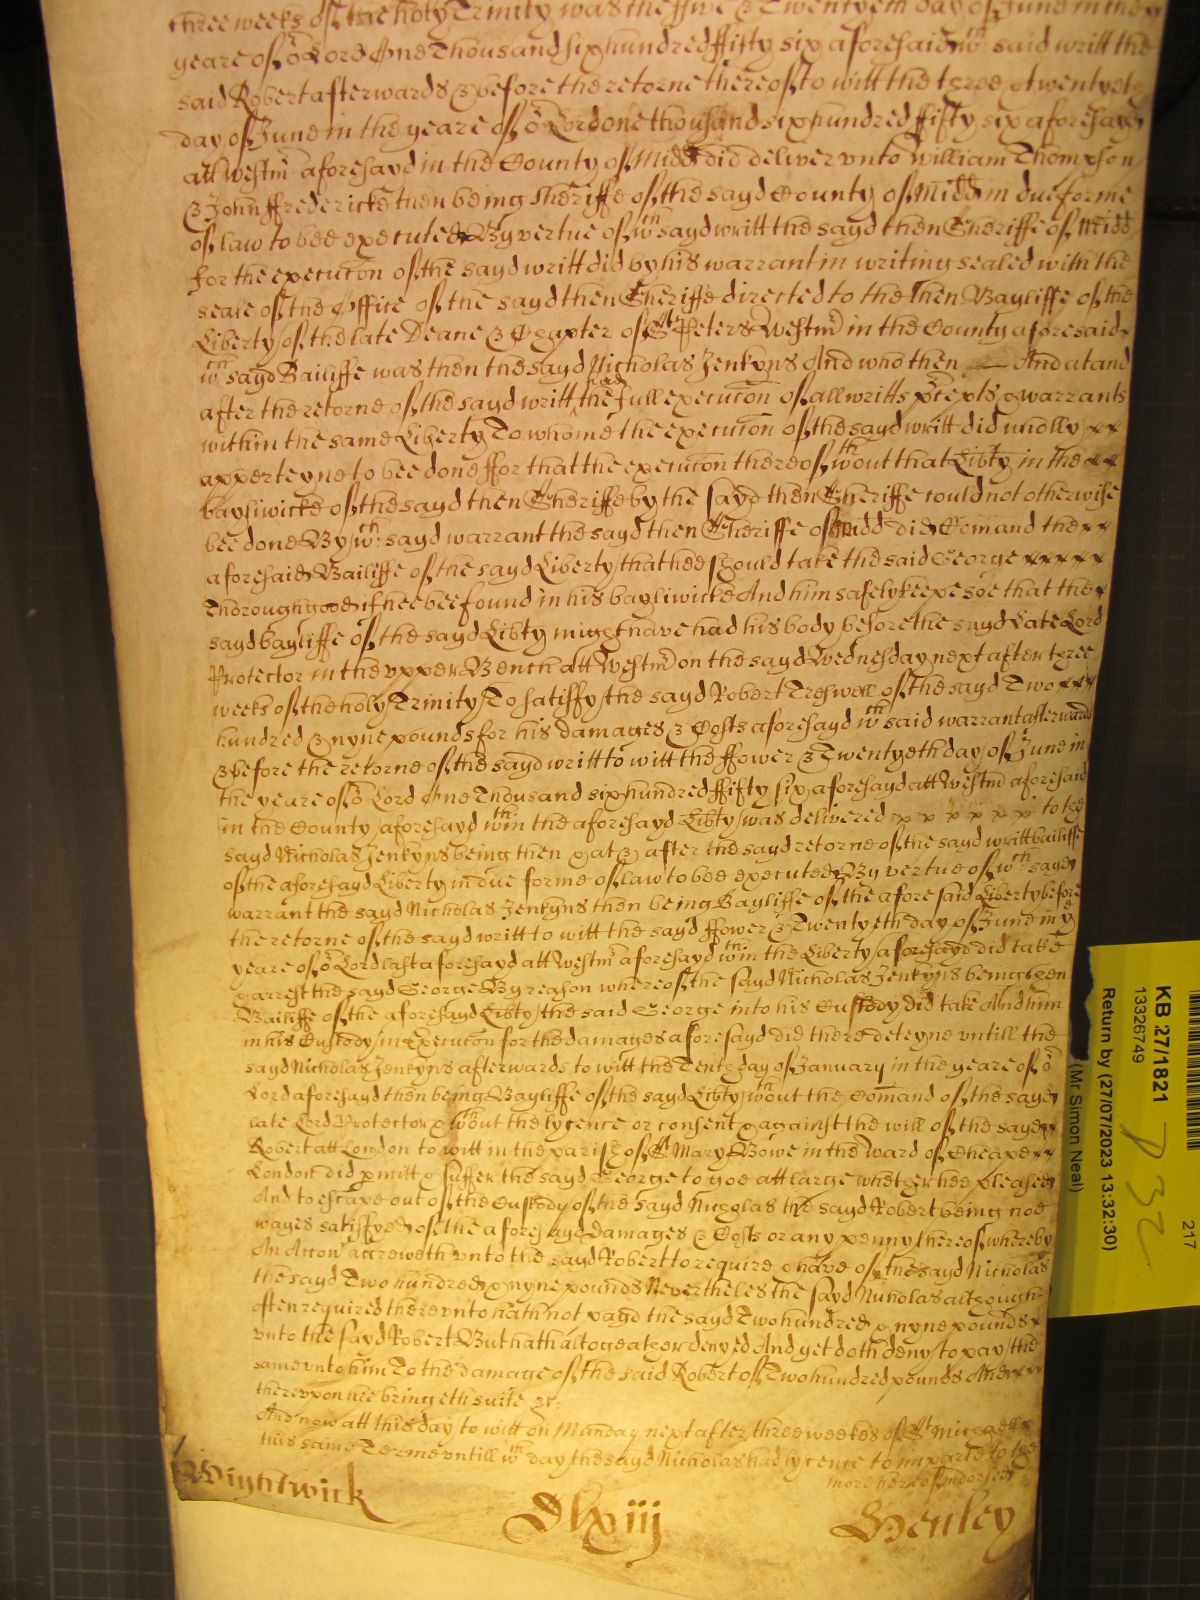 three weekes of the holy Trinity was the ffive & Twentyeth day of June in the
yeare of or Lord One Thousand six hundred ffifty six aforesaid wch said writt the
said Robert afterwards & before the retorne thereof to witt the three & twentyeth
day of June in the yeare of or Lord one thousand six hundred ffifty six aforesayd
att Westmr aforesayd in the County of Midd did deliver vnto William Thompson
& John ffredericke then being Sheriffe of the sayd County of Midd in due forme
of law to bee executed By vertue of wch sayd writt the sayd then Sheriffe of Midd
for the execucon of the sayd writt did by his warrant in writing sealed with the
seale of the Office of the sayd then Sheriffe directed to the then Bayliffe of the
Liberty of the late Deane & Chapter of St Peters Westmr in the County aforesaid
wch sayd Bailiffe was then the sayd Nicholas Jenkyns And who then And at and
after the retorne of the sayd writt had the full execucon of all writts pcepts & warrants
within the same Liberty To whome the execucon of the sayd writt did wholly xx
apperteyne to bee done ffor that the execucon thereof wthout that Libty in the xx
bayliwicke of the sayd then Sheriffe by the sayd then Sheriffe could not otherwise
bee done By wch sayd warrant the sayd then Sheriffe of Midd did Comand the xx
aforesaid Bailiffe of the sayd Liberty that hee should take the said George xxxxx
Thoroughgood if hee bee found in his bayliwicke And him safely keepe soe that the x
sayd bayliffe of the sayd Libty might have had his body before the sayd Late Lord
Protector in the vpper Bench att Westmr on the sayd Wednesday next after three
weeks of the holy Trinity To satisfy the sayd Robert Treswell of the sayd Two xxx
hundred & nyne pounds for his damages & Costs aforesayd wch said warrant afterwards
& before the retorne of the sayd writt to witt the ffower & Twentyeth day of June in
the yeare of or Lord One Thousand six hundred ffifty six aforesayd att Westmr aforesaid
in the County aforesayd wthin the aforesayd Libty was delivered x x x x x x to the
sayd Nicholas Jenkyns being then & at & after the sayd retorne of the sayd writt bailiffe
of the aforesayd Liberty in due forme of law to bee executed By vertue of wch sayd
warrant the sayd Nicholas Jenkyns then being Bayliffe of the aforesaid Liberty before
the retorne of the sayd writt to witt the sayd ffower & Twentyeth day of June in ye
yeare of or Lord last aforesayd att Westmr aforesayd wthin the Liberty aforesayd did take
& arrest the sayd George By reason whereof the sayd Nicholas Jenkyns being then
Bailiffe of the aforesayd Libty the said George into his Custody did take And him
in his Custody in Execucon for the damages aforesayd did there deteyne vntill the
sayd Nicholas Jenkyns afterwards to witt the Tenth day of January in the yeare of or
Lord aforesayd then being Bayliffe of the sayd Libty wthout the Comand of the sayd
late Lord Protector & wthout the lycence or consent & against the will of the sayd xx
Robert att London to witt in the parish of St Mary Bowe in the Ward of Cheape xx
London did pmitt & suffer the sayd George to goe att large whether hee pleased
And to escape out of the Custody of the sayd Nicholas the sayd Robert being noe
wayes satisfyed of the aforesayd damages & Costs or any penny thereof whereby
An Accon accreweth vnto the sayd Robert to require & have of the sayd Nicholas
the sayd Two hundred & nyne pounds Nevertheles the sayd Nicholas although
often required therevnto hath not payd the sayd Two hundred & nyne pounds x
vnto the sayd Robert But hath altogeather denyed And yet doth deny to pay the
same vnto him To the damage of the said Robert of Two hundred pounds And xxx
therevpon hee bringeth suite &c:
And now att this day to witt on Munday next after three weekes of St Michaell
this same Terme vntill wch day the sayd Nicholas had lycence to imparle to the
more hereof indorsed
Wightwick
Dlxiij
Henley
KB 27/1821
13326749
Return by (27/07/2023 13:32:30)
(Mr Simon Neal)
217